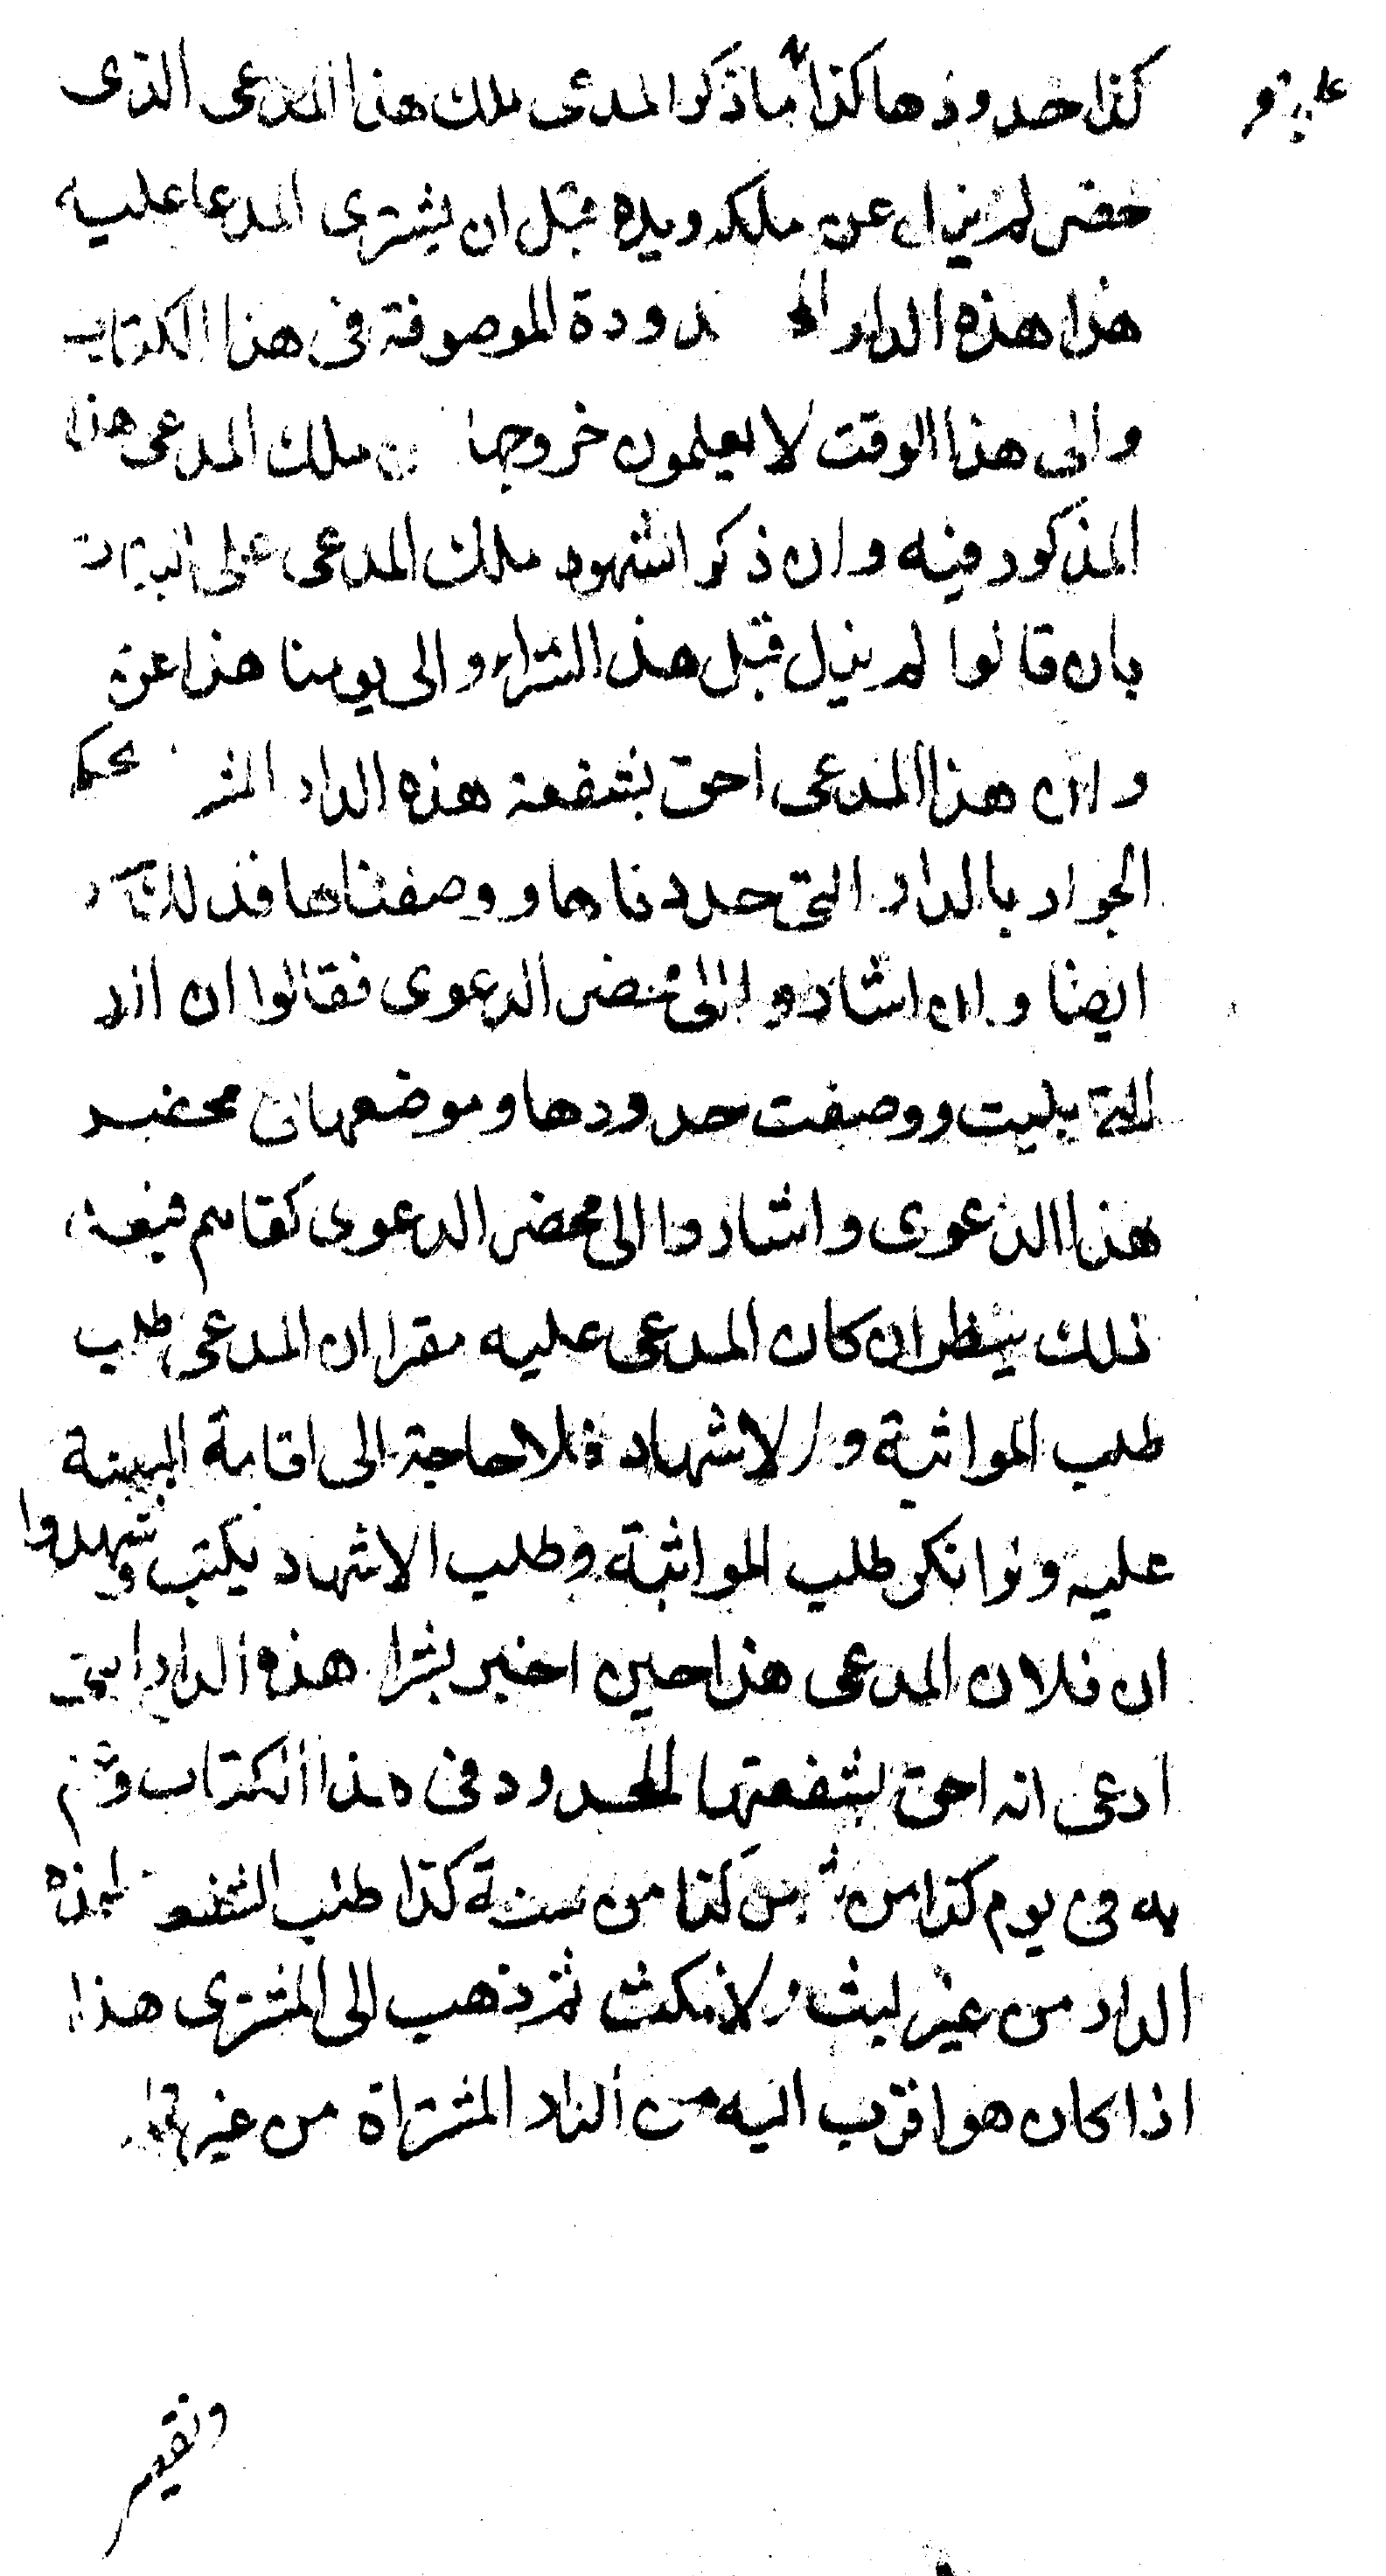 كذا حدودها كذا ما ذكر المدعى ملك هذا المدعى الذى
حضر لم يزل عن ملكه ويده قبل ان يشترى المدعا عليه
هذا هذه الدار المحدودة الموصوفة فى هذا الكتاب
والى هذا الوقت لا يعلمون خروجها ملك المدعى هذا
المذكور فيه وان ذكر الشهود ملك المدعى على
بان قالوا لم يزل قبل هذا الشراء والى يومنا هذا عن
وان هذا المدعى احق بشفعة هذه الدار بحكم
الجوار بالدار التى حددناها ووصفناها فذلك
ايضا وان اشاروا الى محضر الدعوى فقالوا ان
التى بليت ووصفت حدودها وموضعها فى محضر
هذا الدعوى واشاروا الى محضر الدعوى
ذلك ينظر ان كان المدعى عليه مقرا ان المدعى طلب
طلب المواثبة والاشهاد فلا حاجة الى اقامة البينة
عليه ولو انكر طلب المواثبة وطلب الاشهاد يكتب وشهدوا
ان فلان المدعى هذا حين اخبر بشرا هذه الدار التى
ادعى انه احق بشفعتها المحدود فى هذا الكتاب
به فى يوم كذا من كذا من سنة كذا طلب الشفعة لهذه
الدار من غير لبث ولا مكث ثم ذهب الى المشترى هذا
اذا كان هو اقرب اليه من الدار المشتراة من غير